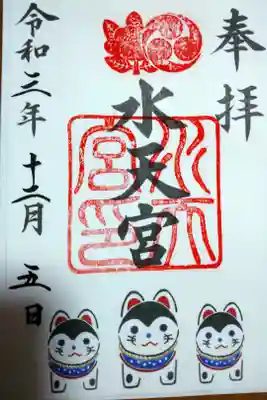 奉拝
水天宮
水天宮印
令和三年 十二月 五日